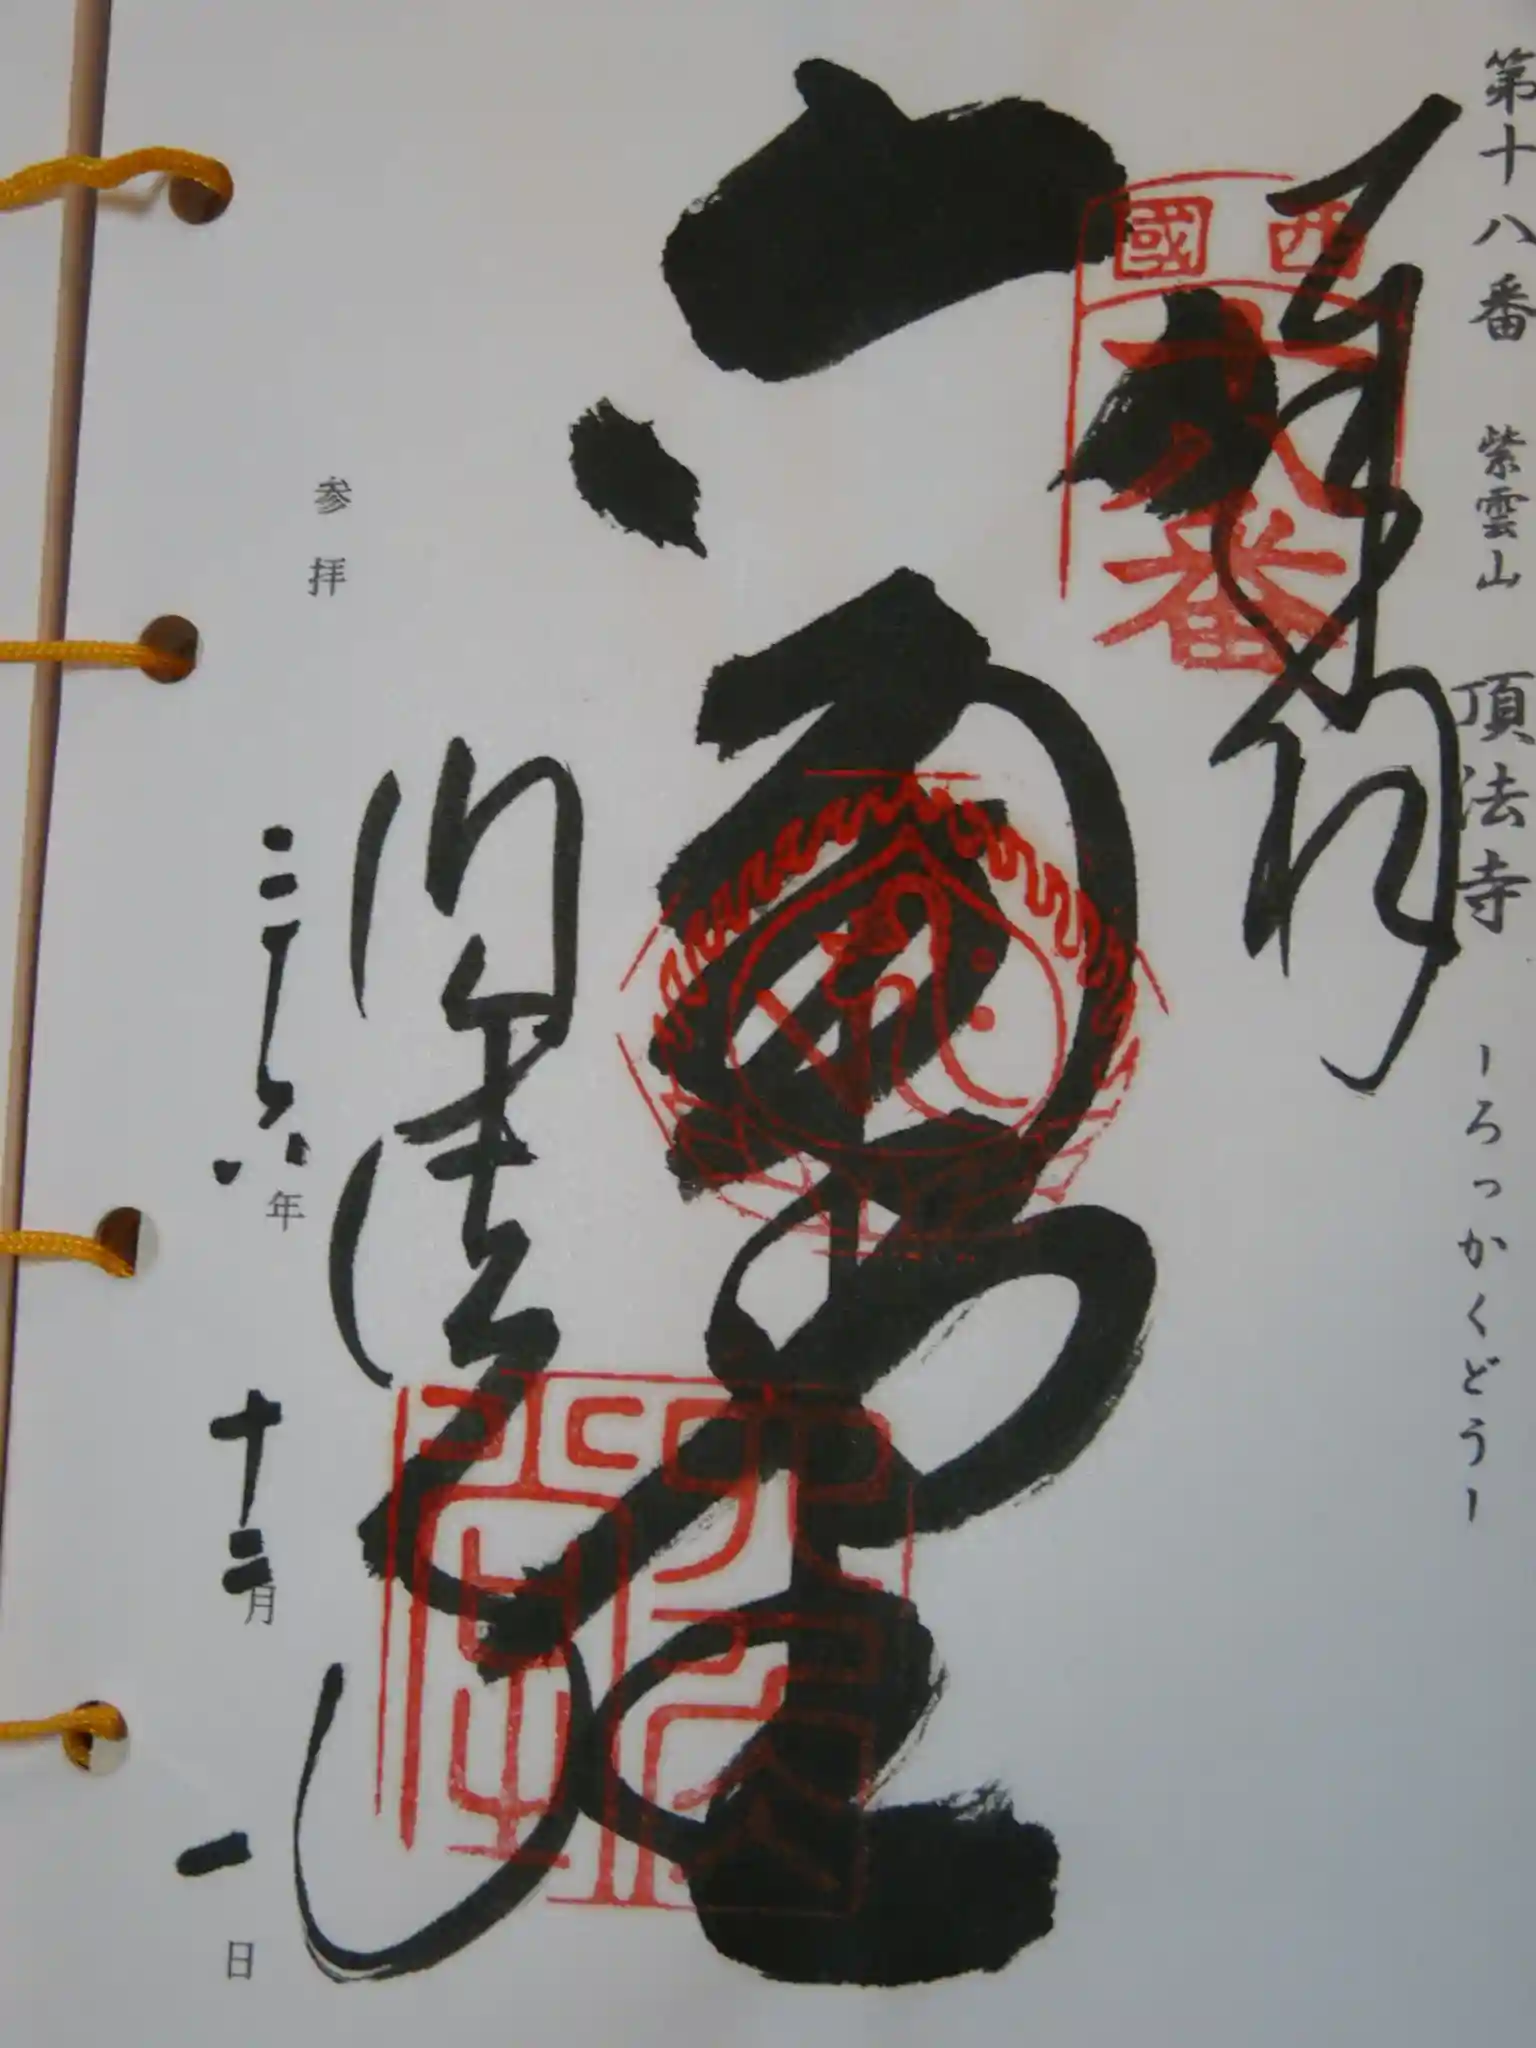 第十八番 紫雲山 頂法寺 ーろっかくどうー
奉拝
西國
十八番
六角堂
六角堂
頂法寺
参拝 二十六年 十二月 一日